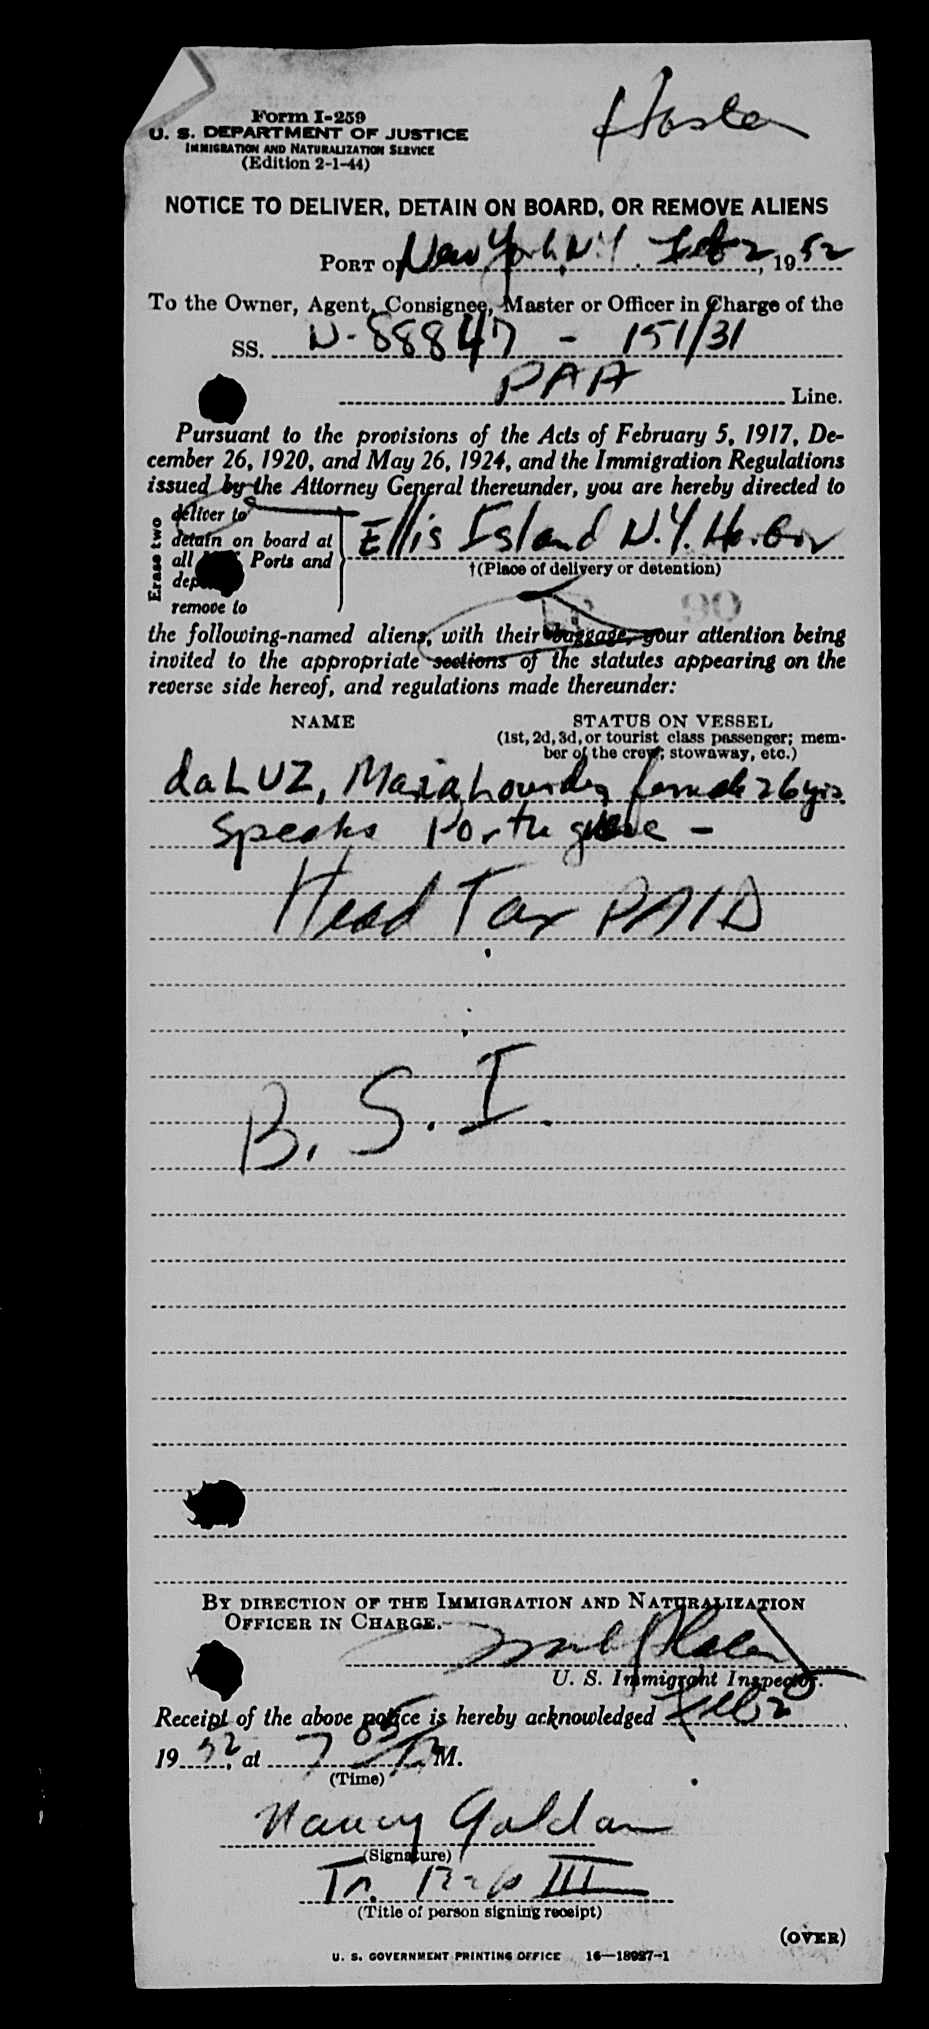 Form I-259
U. S. DEPARTMENT OF JUSTICE
IMMIGRATION AND NATURALIZATION SERVICE
(Edition 2-1-44)
NOTICE TO DELIVER, DETAIN ON BOARD, OR REMOVE ALIENS
PORT OF New York, N.Y. Feb 2, 1952
To the Owner, Agent, Consignee, Master or Officer in Charge of the
SS. N-88847 - 151/31
PAA Line.
Pursuant to the provisions of the Acts of February 5, 1917, De-
cember 26, 1920, and May 26, 1924, and the Immigration Regulations
issued by the Attorney General thereunder, you are hereby directed to
Erase two
deliver to
detain on board at
all Ports and
remove to
Ellis Island N.Y. Harbor
†(Place of delivery or detention)
90
the following-named aliens, with their baggage, your attention being
invited to the appropriate sections of the statutes appearing on the
reverse side hereof, and regulations made thereunder:
NAME
STATUS ON VESSEL
(1st, 2d, 3d, or tourist class passenger; mem-
ber of the crew; stowaway, etc.)
daLUZ, Maria Lourdes female 26 yrs
Speaks Portuguese -
Head Tax PAID
B. S. I.
BY DIRECTION OF THE IMMIGRATION AND NATURALIZATION
OFFICER IN CHARGE.
U. S. Immigrant Inspector.
Receipt of the above notice is hereby acknowledged Feb 2
1952, at 7 05 P.M.
(Time)
Nancy Goldan
(Signature)
Tr. Rep III
(Title of person signing receipt)
(OVER)
U. S. GOVERNMENT PRINTING OFFICE 16—18927-1